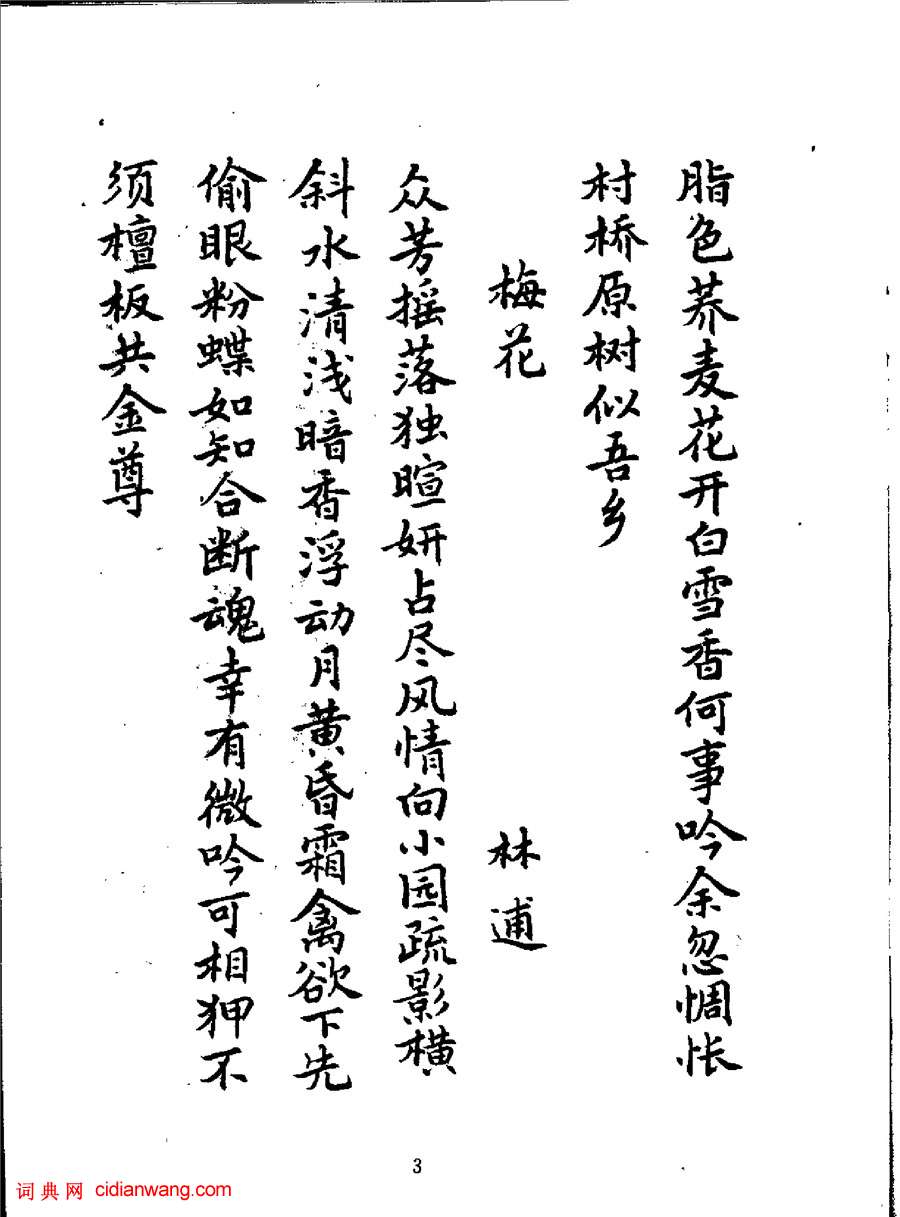 脂色荞麦花开白雪香何事吟余忽惆怅
村桥原树似吾乡
梅花 林逋
众芳摇落独暄妍占尽风情向小园疏影横
斜水清浅暗香浮动月黄昏霜禽欲下先
偷眼粉蝶如知合断魂幸有微吟可相狎不
须檀板共金尊
3
词典网 cidianwang.com